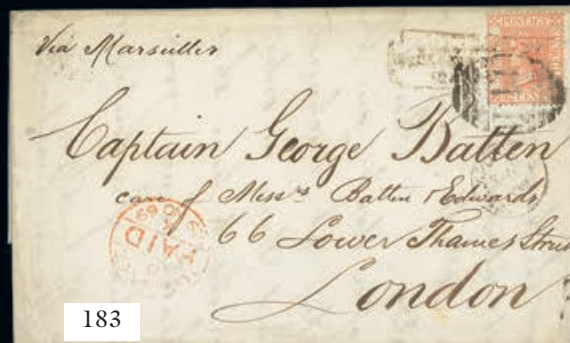 Via Marseilles
POSTAGE
Captain George Batten
care of Messrs Batten & Edwards
PAID
66 Lower Thames Stree
London
183